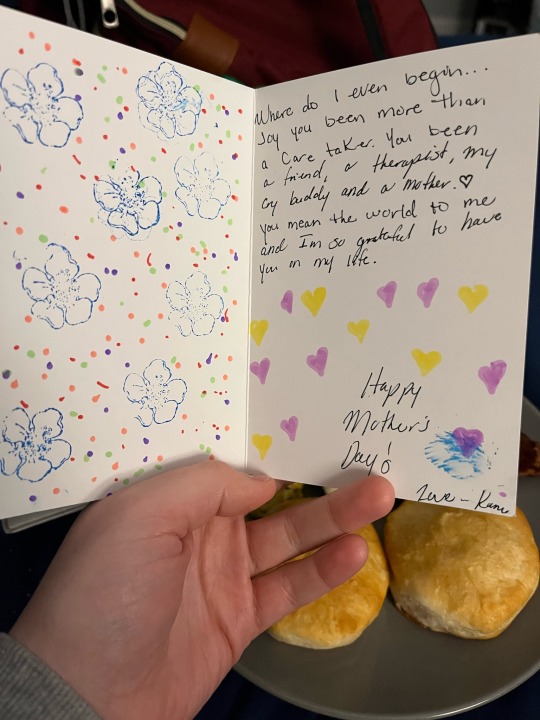 Where do I even begin...
Joy you been more than
a Care taker. You been
a friend, a therapist, my
cry buddy and a mother. ♡
you mean the world to me
and I'm so grateful to have
you in my life.
Happy
Mother's
Day!
Love -